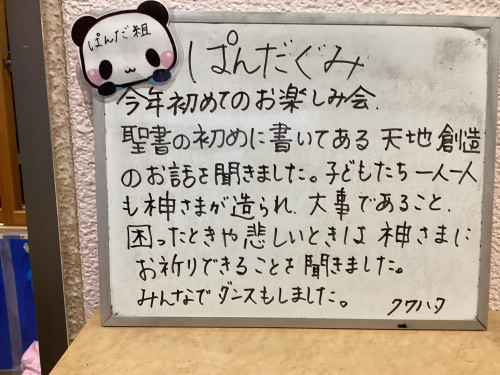 ぱんだ組
ぱんだぐみ
今年初めてのお楽しみ会.
聖書の初めに書いてある 天地創造
のお話を聞きました。子どもたち一人一人
も神さまが造られ、大事であること、
困ったときや悲しいときは 神さまに
お祈りできることを聞きました。
みんなでダンスもしました。
クワハタ